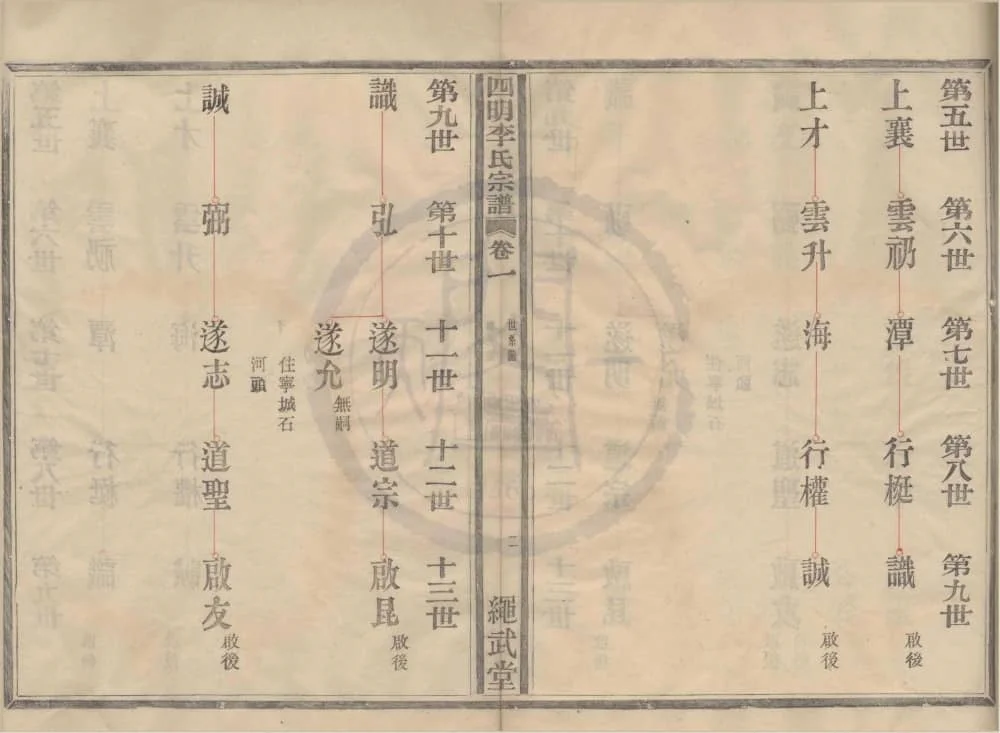 第五世
第六世
第七世
第八世
第九世
上襄
雲礽
潭
行梃
識
啟後
上才
雲升
海
行權
誠
啟後
四明李氏宗譜
卷一
世系圖
二
繩武堂
第九世
第十世
十一世
十二世
十三世
識
弘
遂明
道宗
啟昆
啟後
遂允
無嗣
住寧城石
河頭
誠
弼
遂志
道聖
啟友
啟後